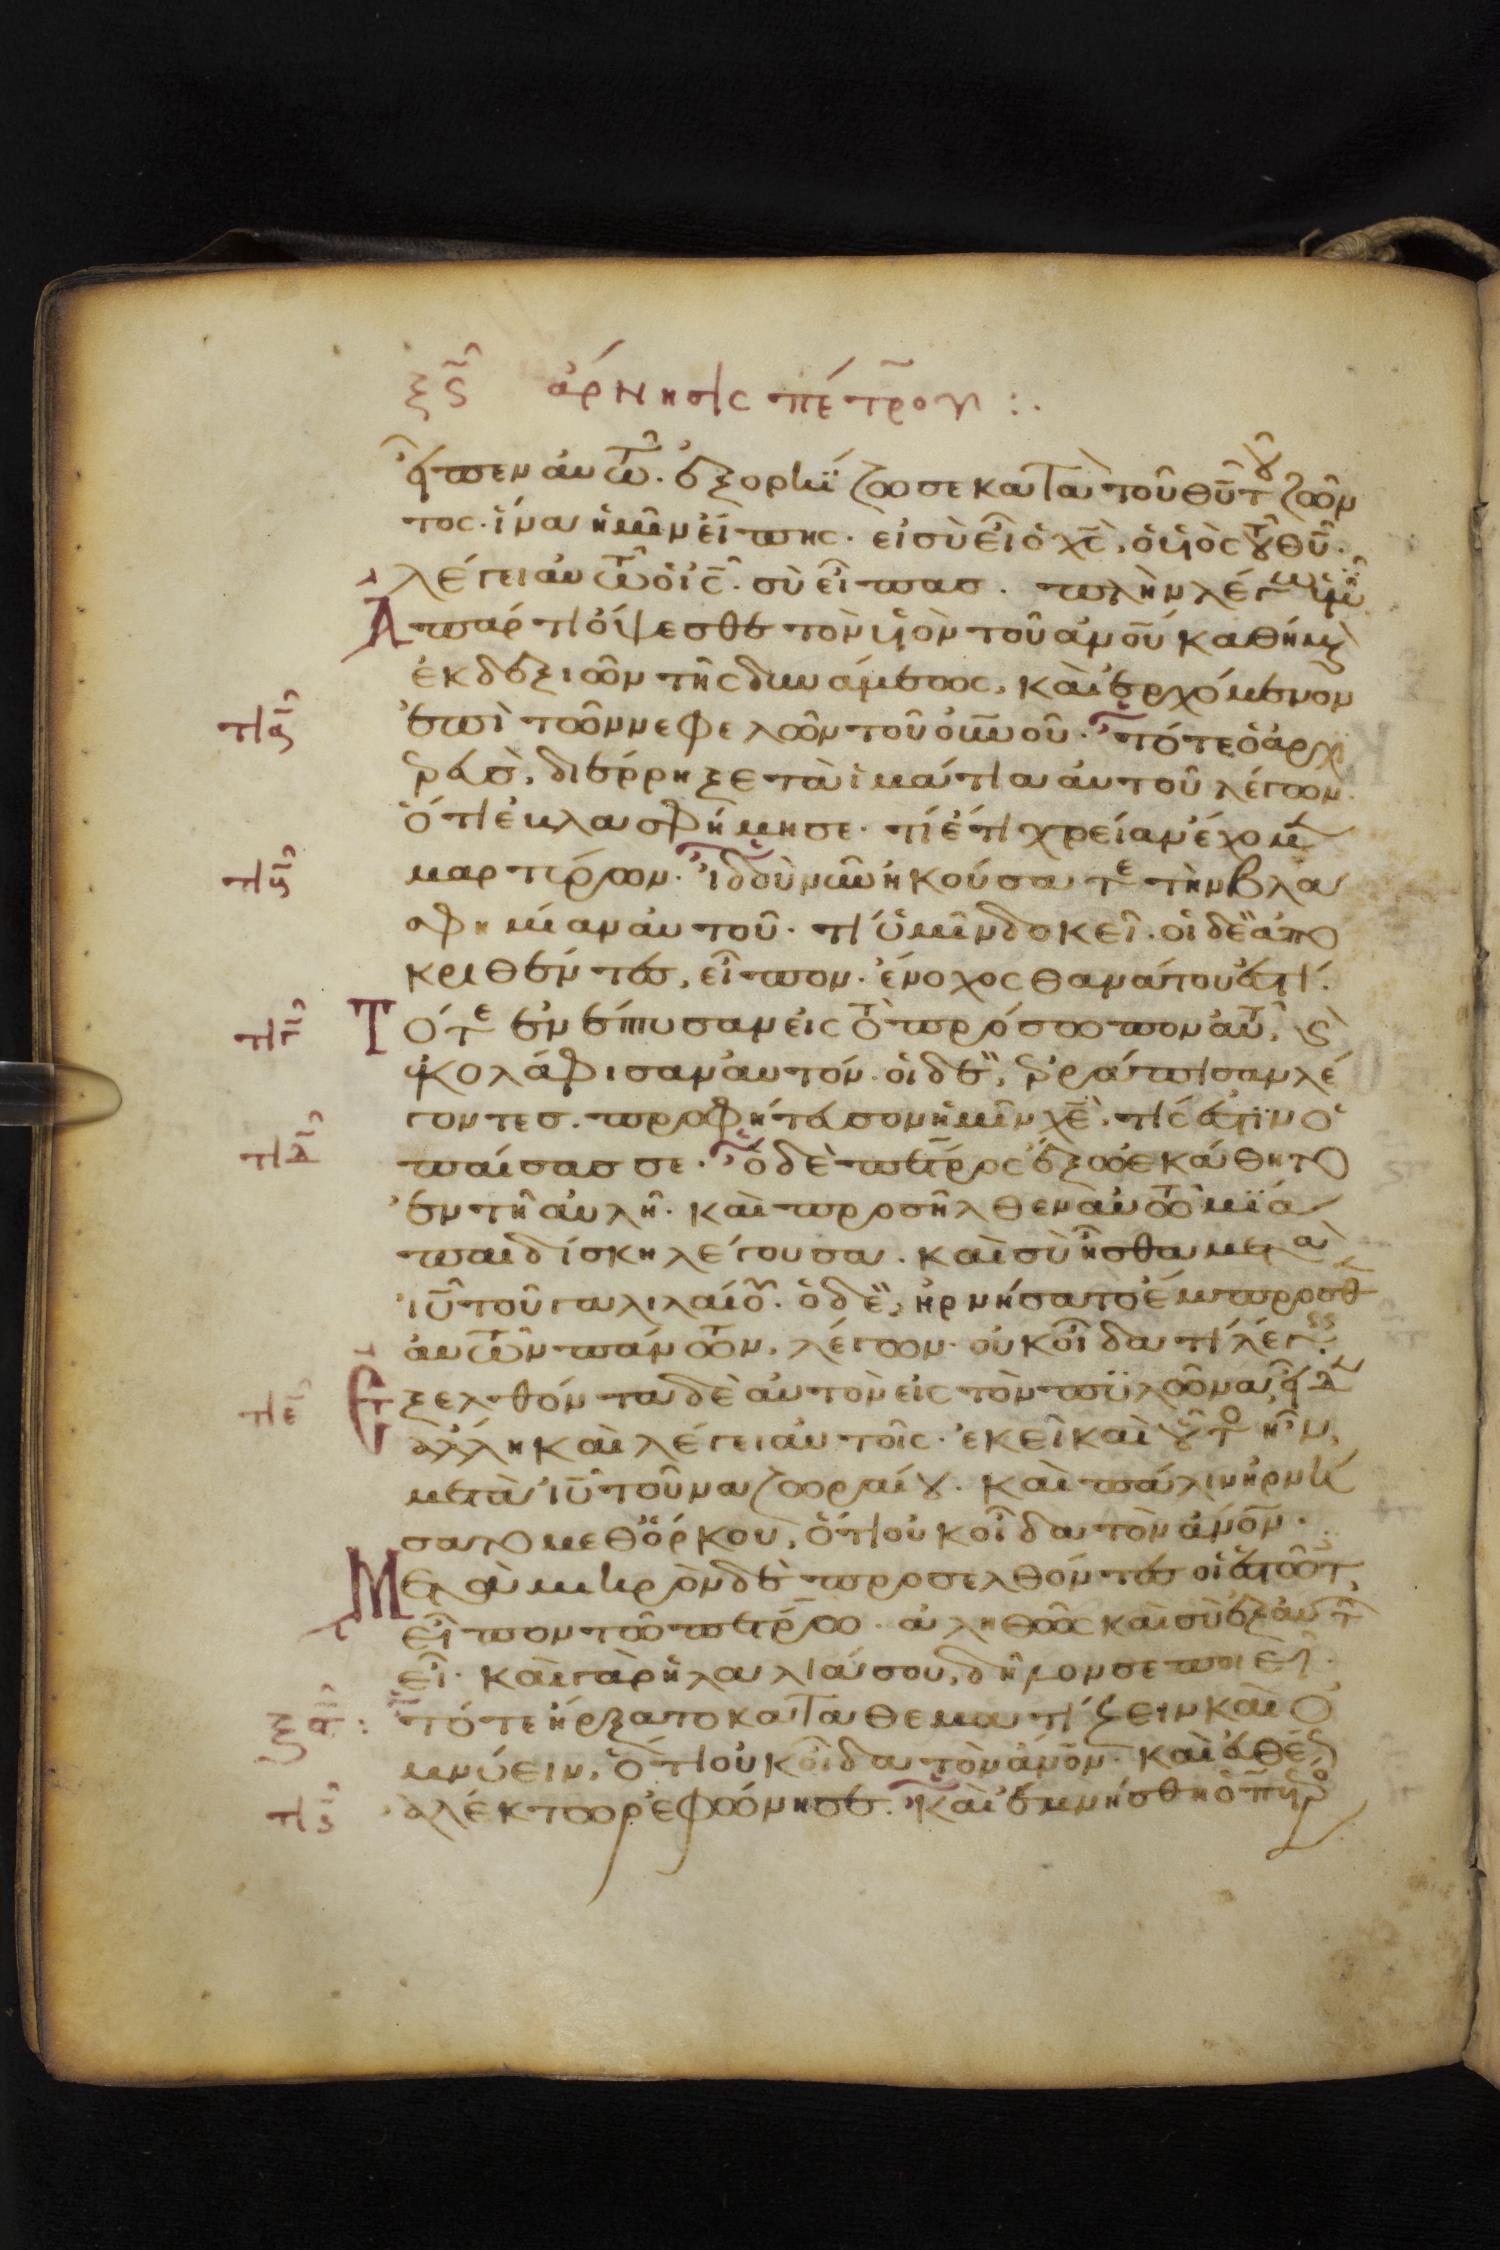 ξς ἄρνησις πέτρου :.
εἶπεν αὐτῶ. ἐξορκίζω σε κατὰ τοῦ θῦ τοῦ ζῶν
τος. ἵνα ἡμῖν εἴπης. εἰ σὺ εἶ ὁ χς, ὁ υἱὸς τοῦ θῦ.
λέγει αὐτῶ ὁ ις. σὺ εἶπας. πλὴν λέγω ὑμῖν
Ἀπάρτι ὄψεσθε τὸν υἱὸν τοῦ ἀνοῦ καθήμενον
ἐκ δεξιῶν τῆς δυνάμεως, καὶ ἐρχόμενον
ἐπὶ τῶν νεφελῶν τοῦ οὐνοῦ. τότε ὁ ἀρχι
ερεὺς, διέρρηξε τὰ ἱμάτια αὐτοῦ λέγων
ὅτι ἐβλασφήμησε. τί ἔτι χρείαν ἔχομεν
μαρτύρων. ἴδε νῦν ἠκούσατε τὴν βλα
σφημίαν αὐτοῦ. τί ὑμῖν δοκεῖ. οἱ δὲ ἀπο
κριθέντες, εἶπον. ἔνοχος θανάτου ἐστί.
Τότε ἐνέπτυσαν εἰς τὸ πρόσωπον αὐτοῦ, καὶ
ἐκολάφισαν αὐτόν. οἱ δὲ, ἐράπισαν λέ
γοντες. προφήτευσον ἡμῖν χε. τίς ἐστιν ὁ
παίσας σε. ὁ δὲ πέτρος ἔξω ἐκάθητο
ἐν τῆ αὐλῆ. καὶ προσῆλθεν αὐτῶ μία
παιδίσκη λέγουσα. καὶ σὺ ἦσθα μετὰ
ιῦ τοῦ γαλιλαίου. ὁ δὲ, ἠρνήσατο ἔμπροσθεν
αὐτῶν πάντων, λέγων. οὐκ οἶδα τί λέγεις.
Ἐξελθόντα δὲ αὐτὸν εἰς τὸν πυλῶνα, εἶδεν
ἄλλη καὶ λέγει αὐτοῖς. ἐκεῖ καὶ οὗτος ἦν,
μετὰ ιῦ τοῦ ναζωραίου. καὶ πάλιν ἠρνή
σατο μεθ ὅρκου, ὅτι οὐκ οἶδα τὸν ἄνον.
Μετὰ μικρὸν δὲ προσελθόντες οἱ ἑστῶτες,
εἶπον τῶ πέτρω. ἀληθῶς καὶ σὺ ἐξ αὐτῶν
εἶ. καὶ γὰρ ἡ λαλιά σου, δῆλον σε ποιεῖ.
τότε ἤρξατο καταθεματίζειν καὶ ὀ
μνύειν, ὅτι οὐκ οἶδα τὸν ἄνον. καὶ εὐθέως
ἀλέκτωρ ἐφώνησε. Καὶ ἐμνήσθη ὁ πέτρος